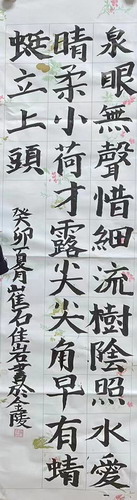 泉眼無聲惜細流樹陰照水愛
晴柔小荷才露尖尖角早有蜻
蜓立上頭
癸卯夏月崔石佳岩書於金陵